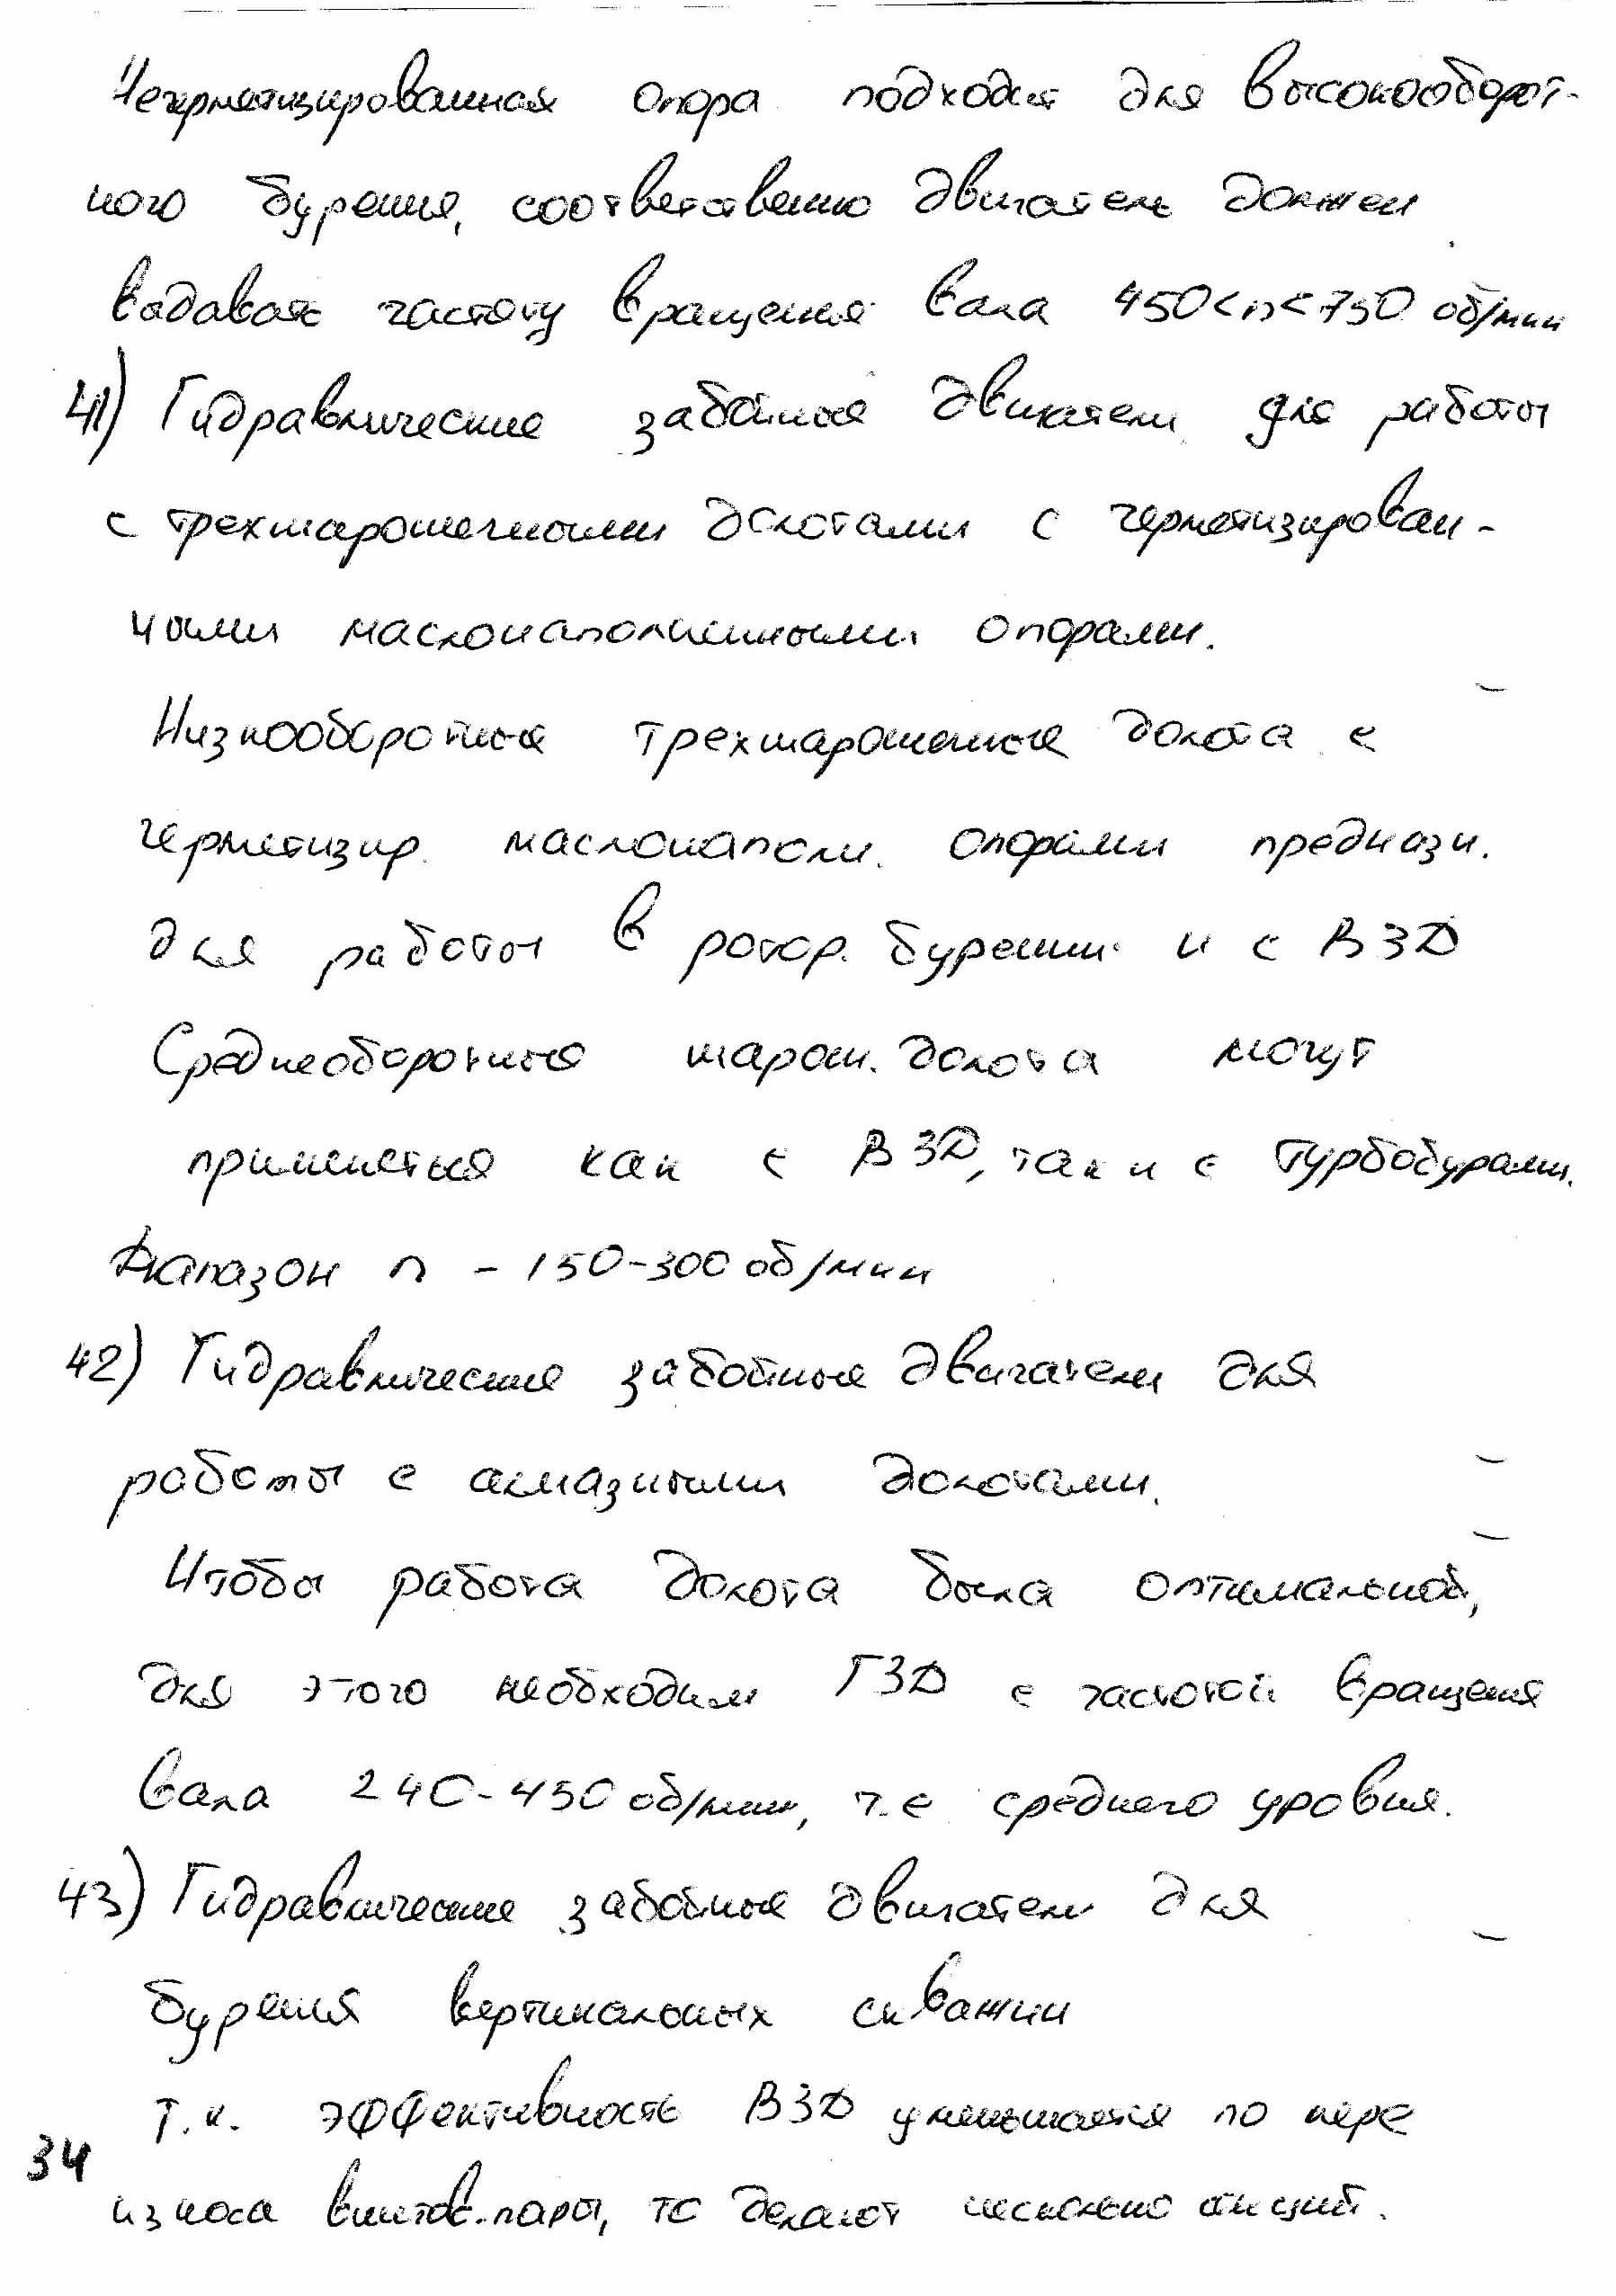 Негерметизированная опора подходит для высокооборот-
ного бурения, соответственно двигатель должен
выдавать частоту вращения вала 450<n<750 об/мин
41) Гидравлические забойные двигатели для работы
с трехшарошечными долотами с герметизирован-
ными маслонаполненными опорами.
Низкооборотные трехшарошечные долота с
герметизир. маслонаполн. опорами предназн.
для работы в ротор. бурении и с ВЗД
Среднеоборотные шарош. долота могут
применяться как с ВЗД, так и с турбобурами.
Диапазон n - 150-300 об/мин
42) Гидравлические забойные двигатели для
работы с алмазными долотами.
Чтобы работа долота была оптимальной,
для этого необходим ГЗД с частотой вращения
вала 240-450 об/мин, т.е среднего уровня.
43) Гидравлические забойные двигатели для
бурения вертикальных скважин
Т.к. эффективность ВЗД уменьшается по мере
34
износа винтов. пары, то делают несколько секций.